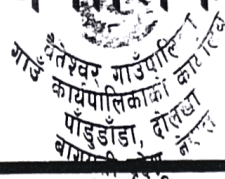 वैतेश्वर गाउँपालिका
गाउँ कार्यपालिकाको कार्यालय
पाँडुडाँडा, दोलखा
नेपाल